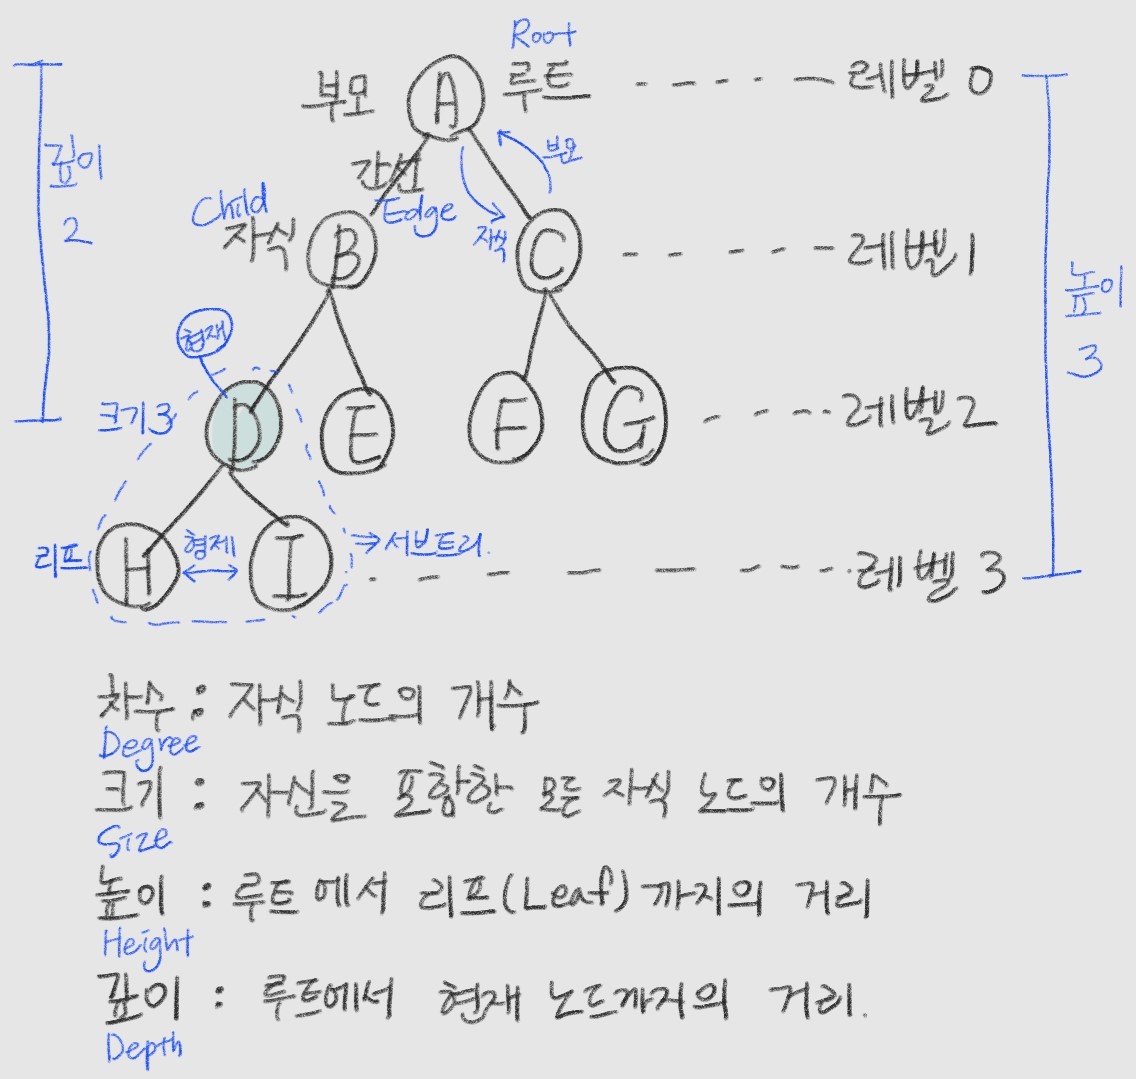 Root
부모 A 루트 레벨 0
깊이 2
간선
Edge
부모
자식
Child
자식 B C 레벨 1
높이 3
현재
크기 3 D E F G 레벨 2
리프 H 형제 I 서브트리. 레벨 3
차수 : 자식 노드의 개수
Degree
크기 : 자신을 포함한 모든 자식 노드의 개수
Size
높이 : 루트에서 리프(Leaf)까지의 거리
Height
깊이 : 루트에서 현재 노드까지의 거리.
Depth